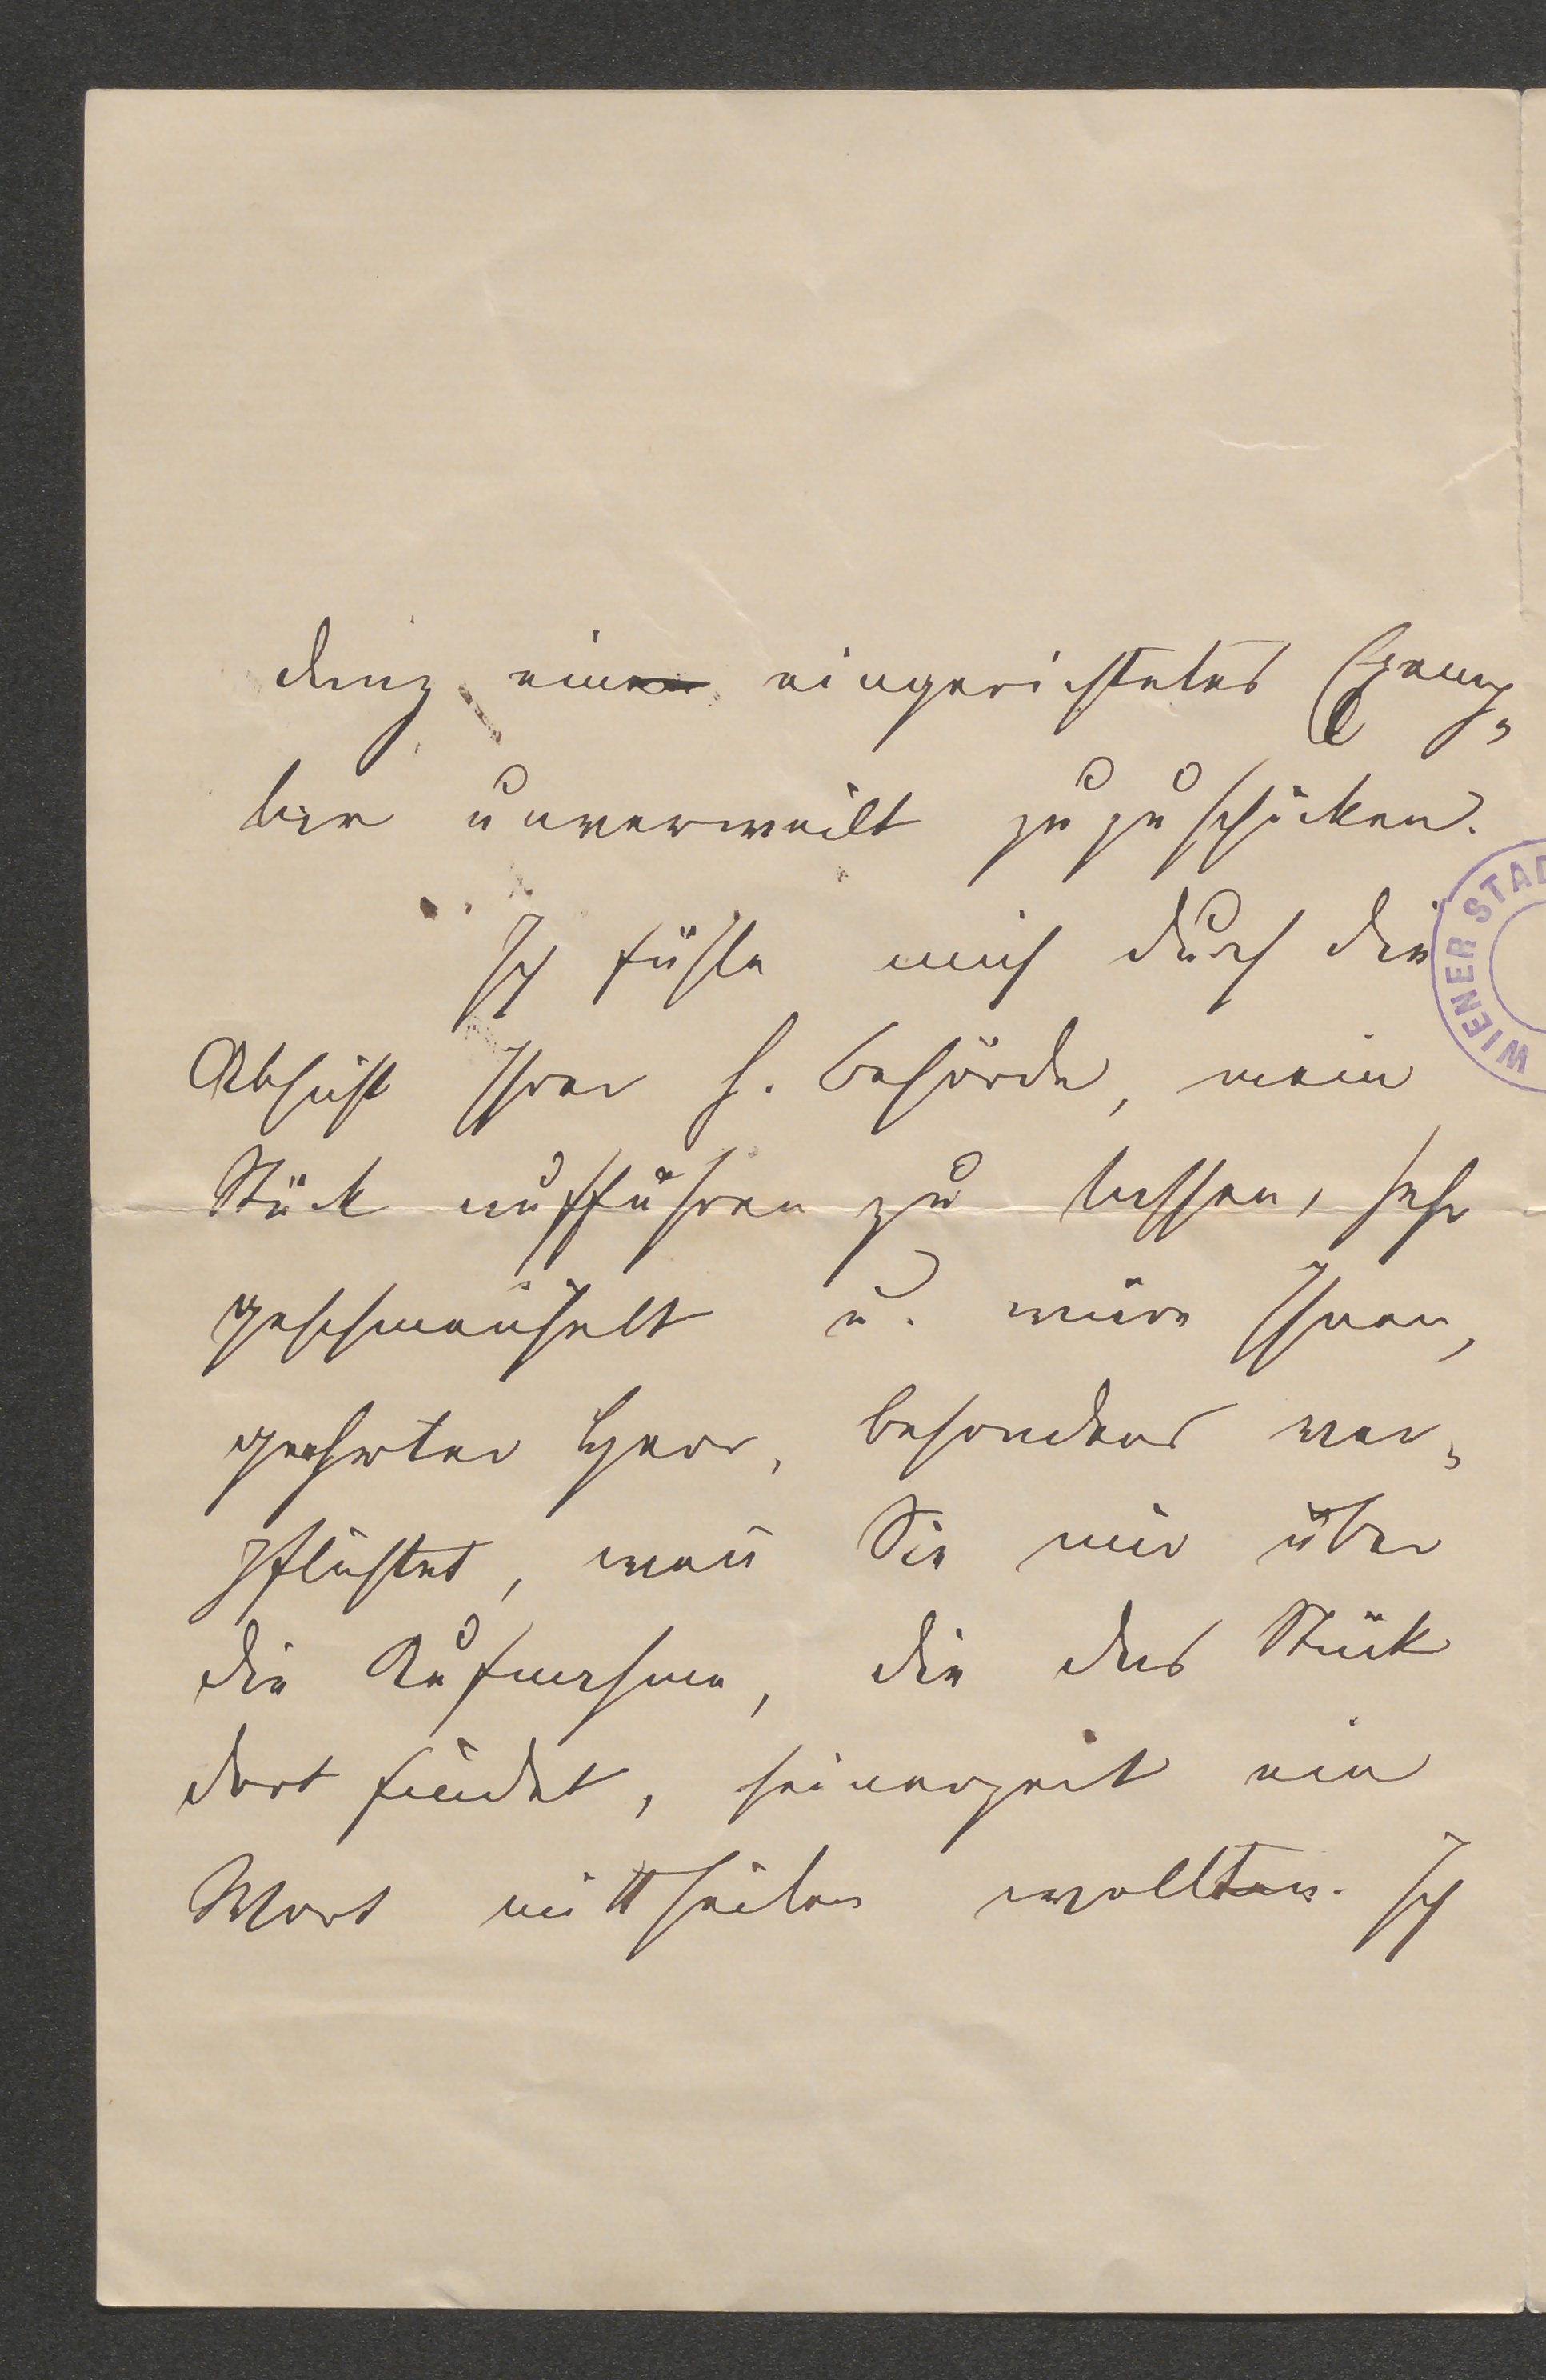 danz ein eingerichtetes Exemp-
lar unverweilt zuzuschicken.
Ich fühle mich durch die
Absicht Ihrer h. Behörde, mein
Stück aufführen zu lassen, sehr
geschmeichelt u. wäre Ihnen,
geehrter Herr, besonders ver-
pflichtet, wenn Sie mir über
die Aufnahme, die das Stück
dort findet, seinerzeit ein
Wort mittheilen wollten. Ich
WIENER STAD